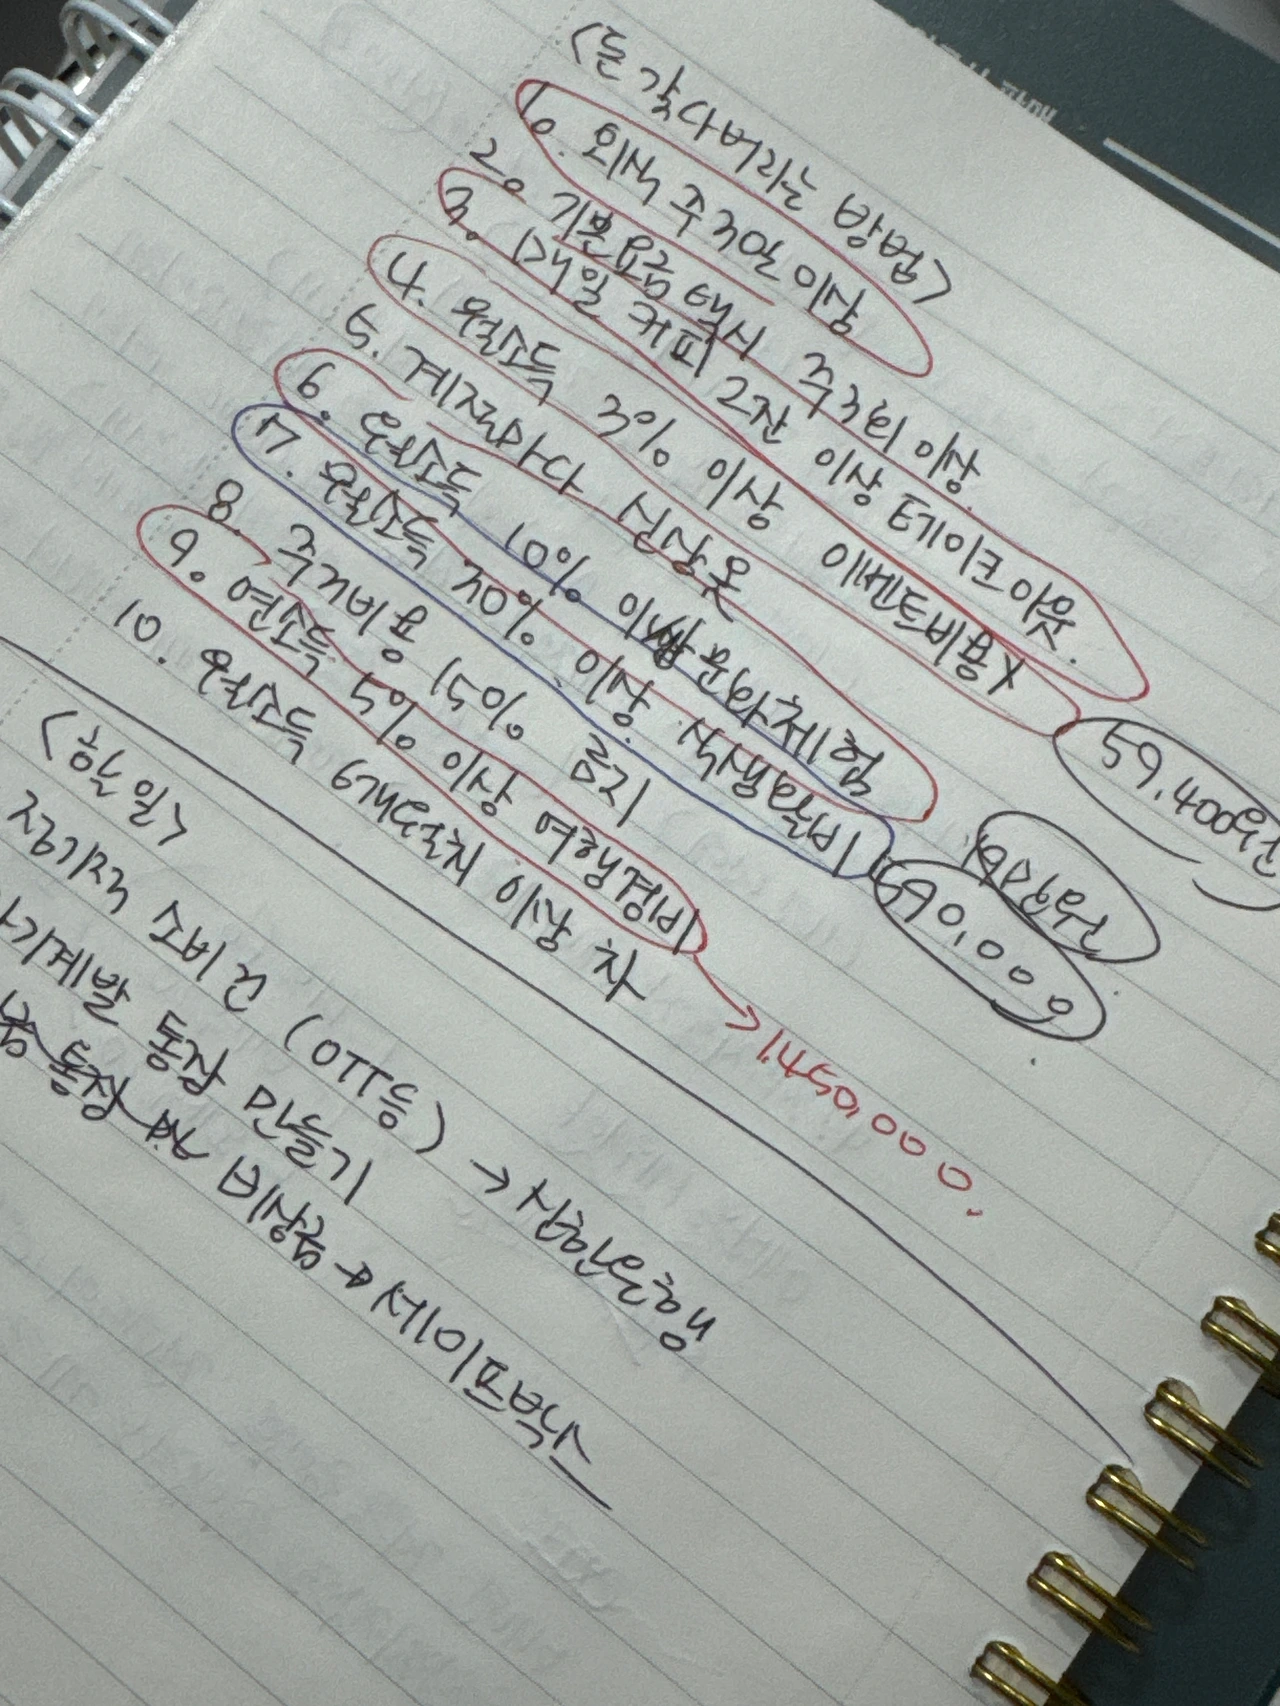 <돈 갖다버리는 방법>
1. 외식 주 3만 이상
2. 기본요금 택시 주 3회 이상
3. 매일 커피 2잔 이상 테이크아웃.
4. 월소득 3% 이상 이벤트비용X
59,400원
5. 계절마다 싱상옷
6. 월소득 10% 이상 문화체험
190만원
7. 월소득 20% 이상. 식생활비
590,000
8. 주거비용 15% 금지
9. 연소득 5% 이상 여행경비
→ 1,450,000.
10. 월소득 6개월치 이상 차
<할 일>
정기적 소비 건 (OTT등) → 신한은행
기계발 통장 만들기
통장 비상금 → 세이프박스